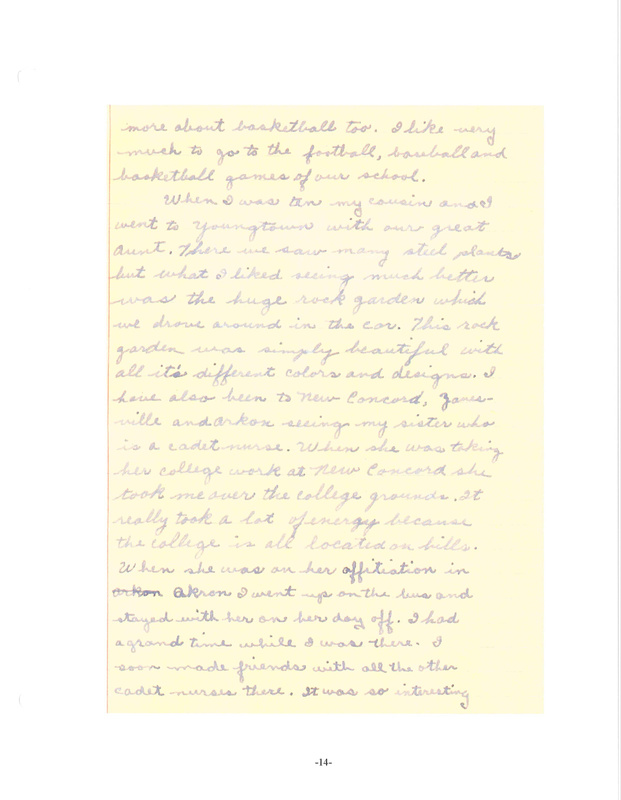 more about basketball too. I like very
much to go to the football, baseball and
basketball games of our school.
When I was ten my cousin and I
went to Youngtown with our great
Aunt. There we saw many steel plants
but what I liked seeing much better
was the huge rock garden which
we drove around in the car. This rock
garden was simply beautiful with
all it's different colors and designs. I
have also been to New Concord, Zanes-
ville and Arkon seeing my sister who
is a cadet nurse. When she was taking
her college work at New Concord she
took me over the college grounds. It
really took a lot of energy because
the college is all located on hills.
When she was on her affitiation in
Arkon Akron I went up on the bus and
stayed with her on her day off. I had
a grand time while I was there. I
soon made friends with all the other
cadet nurses there. It was so interesting
-14-